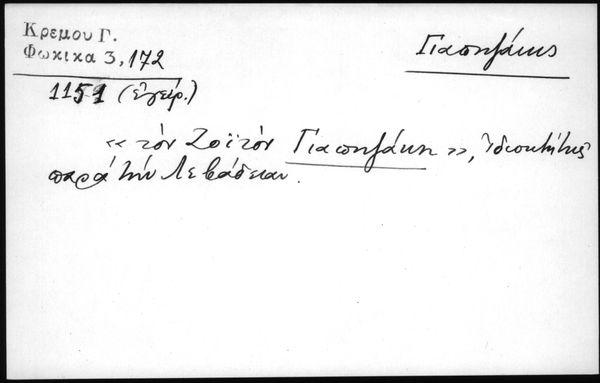 Κρεμου Γ.
Φωκικα 3, 172
Γιαπηζάκης
1151 (ἐγείρ.)
«τὸν Ζοϊτὸν Γιαπηζάκη», ἰδιοκτήτης
παρὰ τὴν Λεβάδειαν.